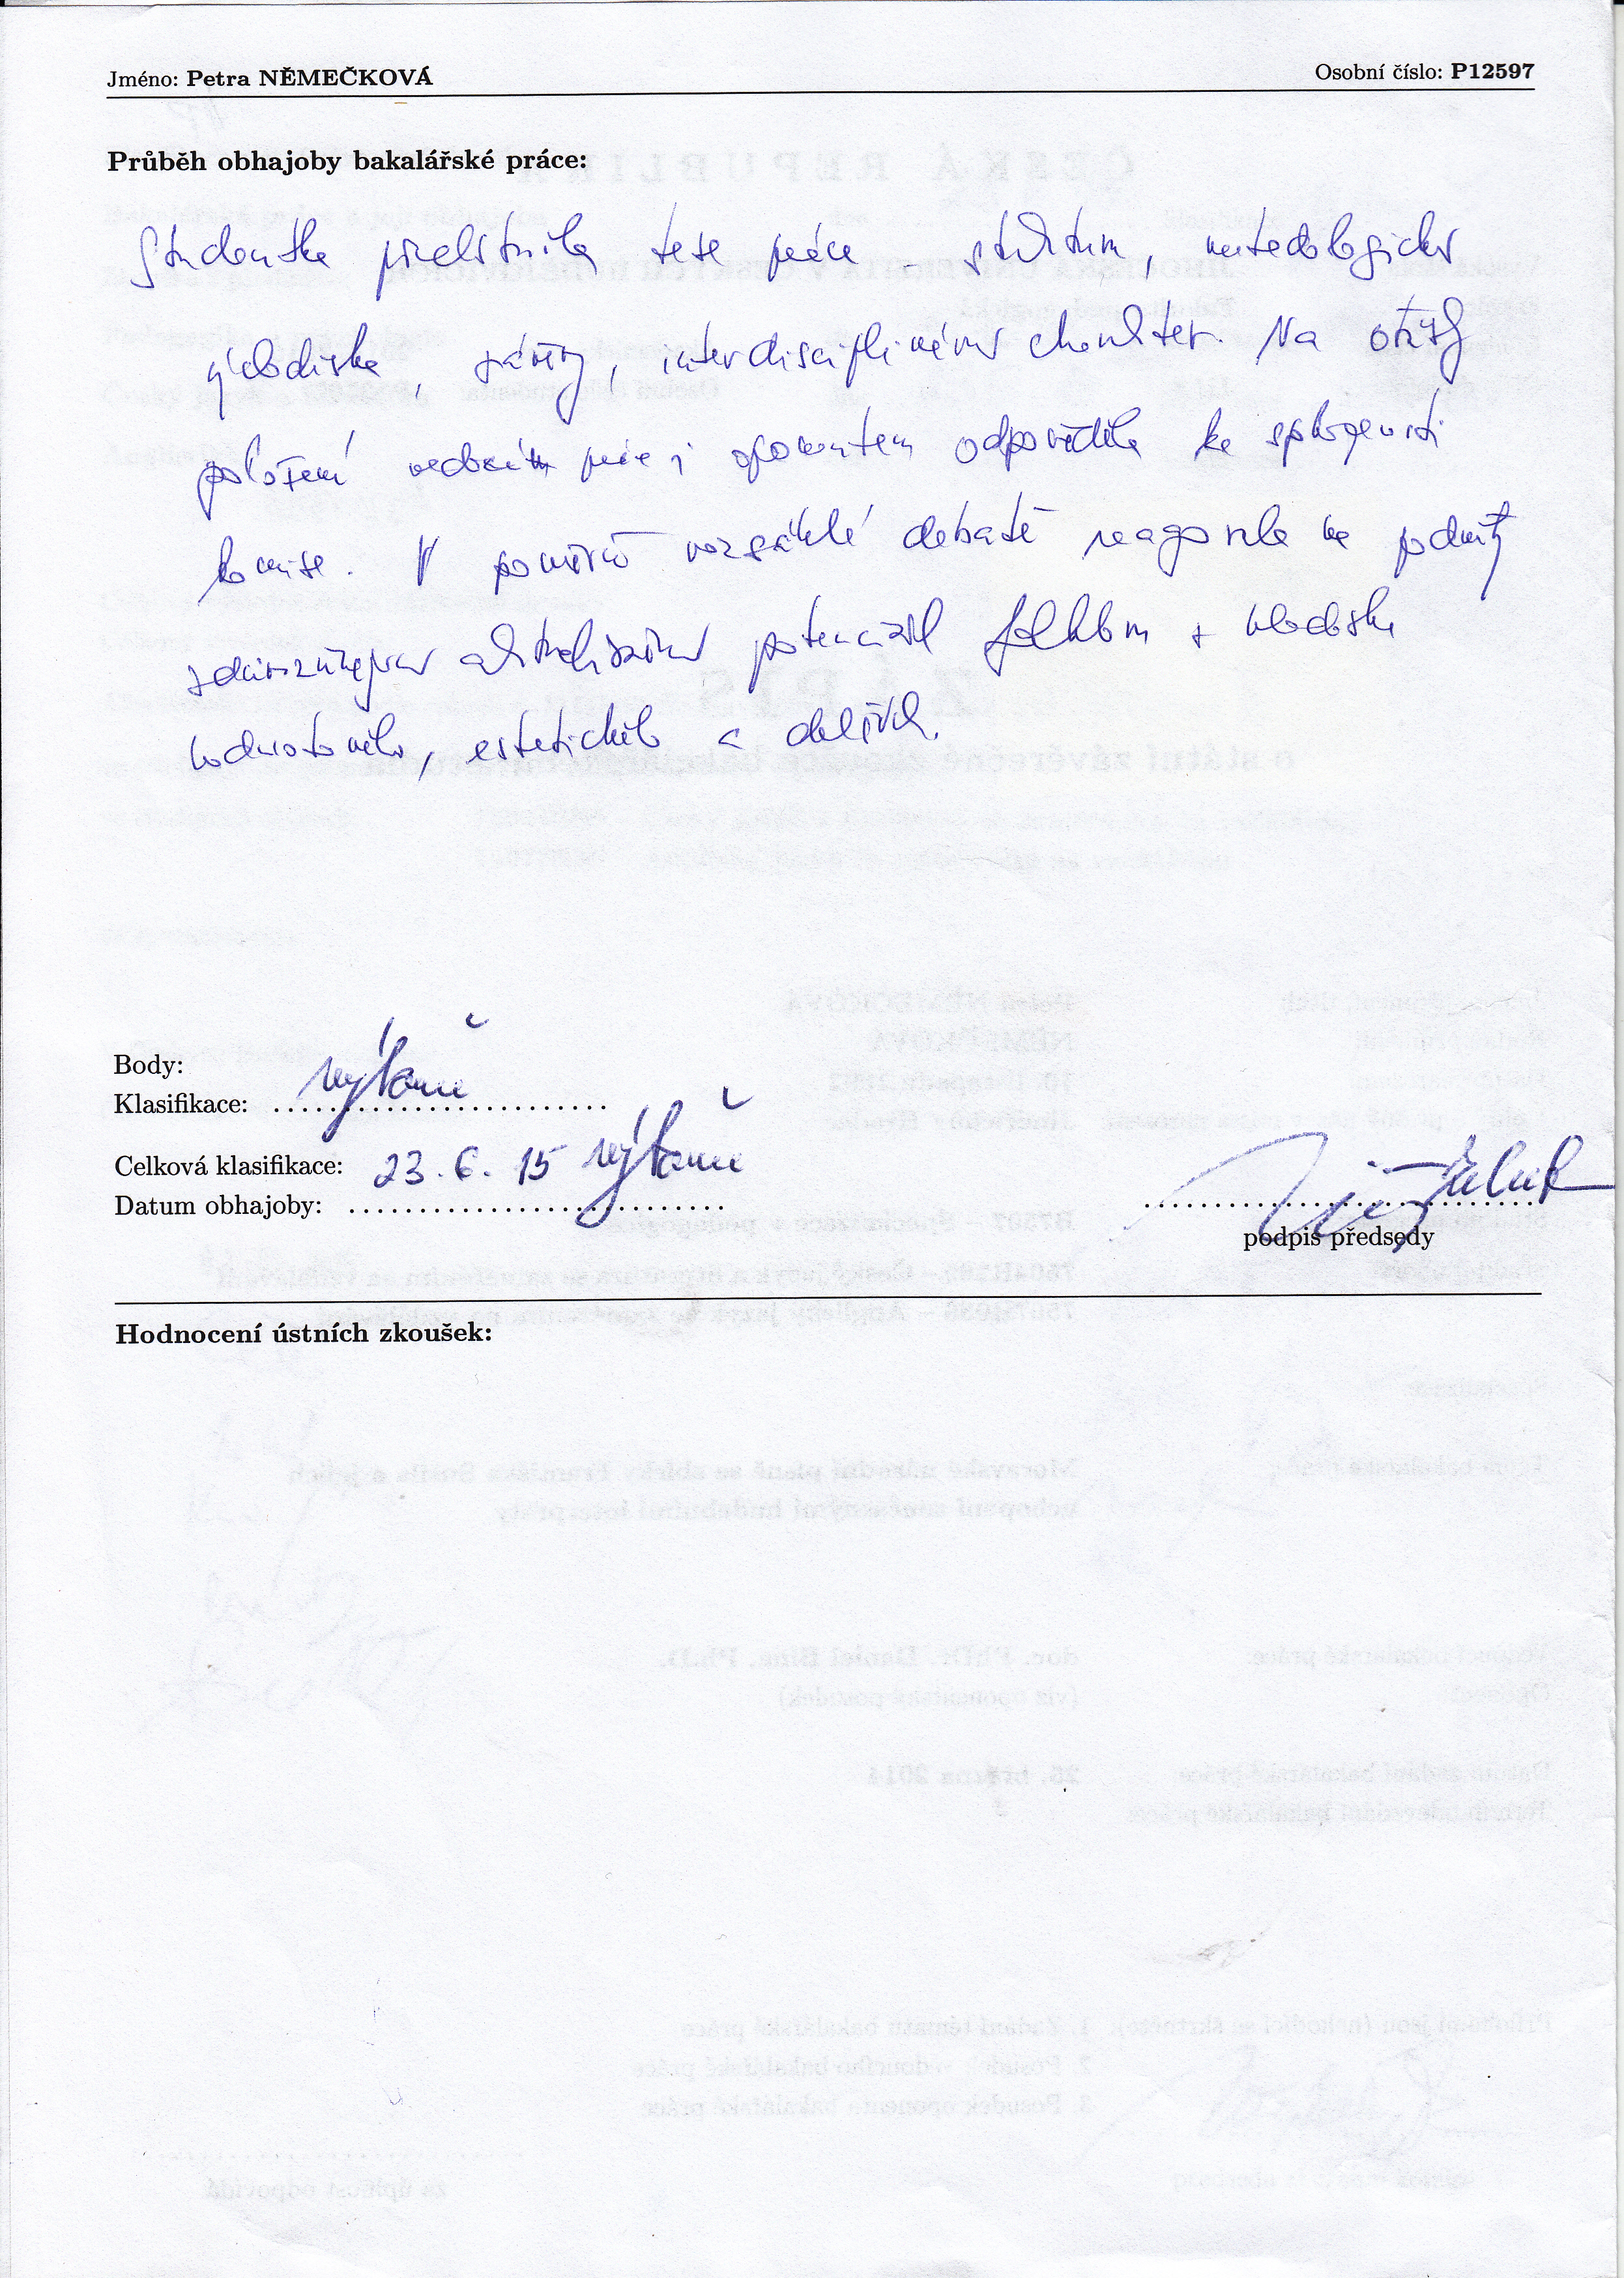 Jméno: Petra NĚMEČKOVÁ
Osobní číslo: P12597
Průběh obhajoby bakalářské práce:
Studentka představila teze práce - strukturu, metodologická
východiska, závěry, interdisciplinární charakter. Na otázky
položené vedoucím práce i oponentem odpověděla ke spokojenosti
komise. V poměrně rozsáhlé debatě reagovala na podněty
potenciál folkloru z hlediska
hodnotového, estetického a dalších.
Body:
Klasifikace: výborně
Celková klasifikace: výborně
Datum obhajoby: 23. 6. 15
podpis předsedy
Hodnocení ústních zkoušek: